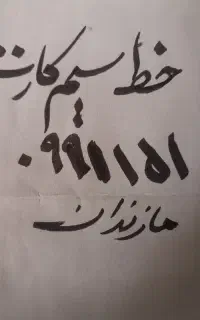 خط سیم کارت
۰۹۹۱۱۱۵۱
مازندران